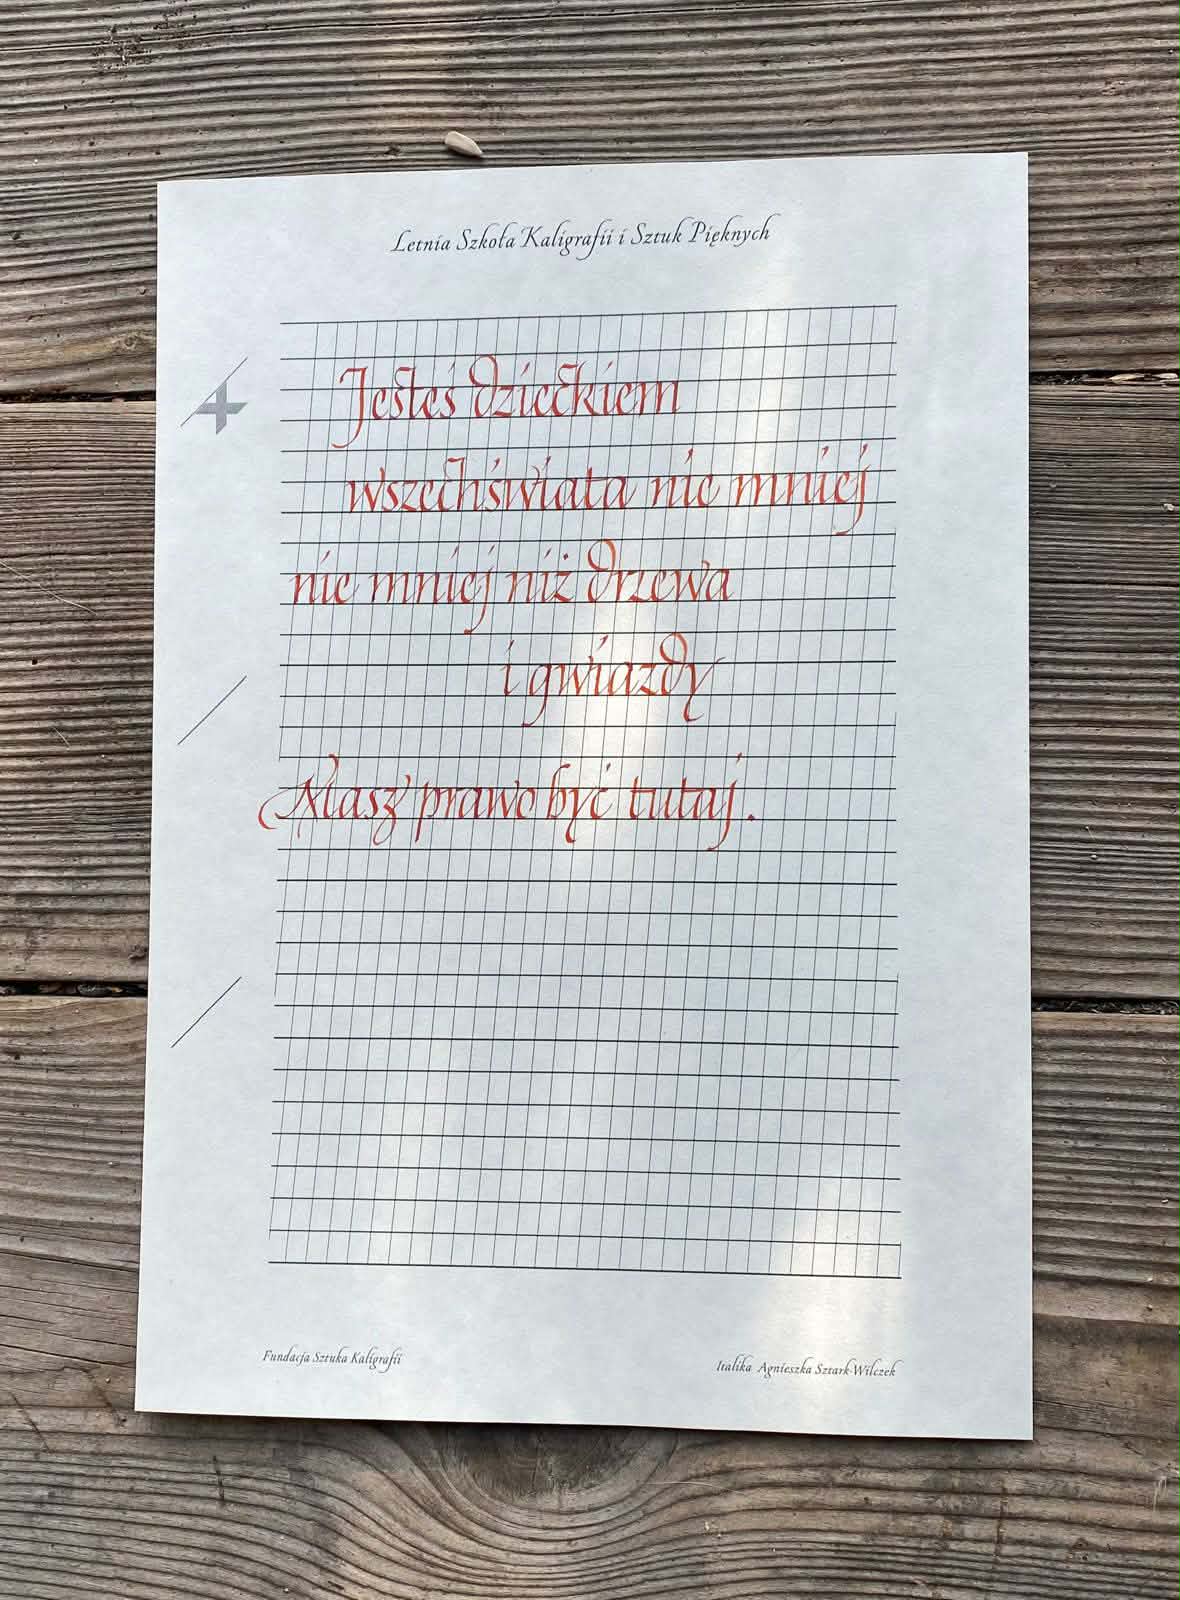 Letnia Szkoła Kaligrafii i Sztuk Pięknych
Jesteś dzieckiem
wszechświata nie mniej
nie mniej niż drzewa
i gwiazdy
Masz prawo być tutaj.
Fundacja Sztuka Kaligrafii
Italika Agnieszka Sztark-Wilczek